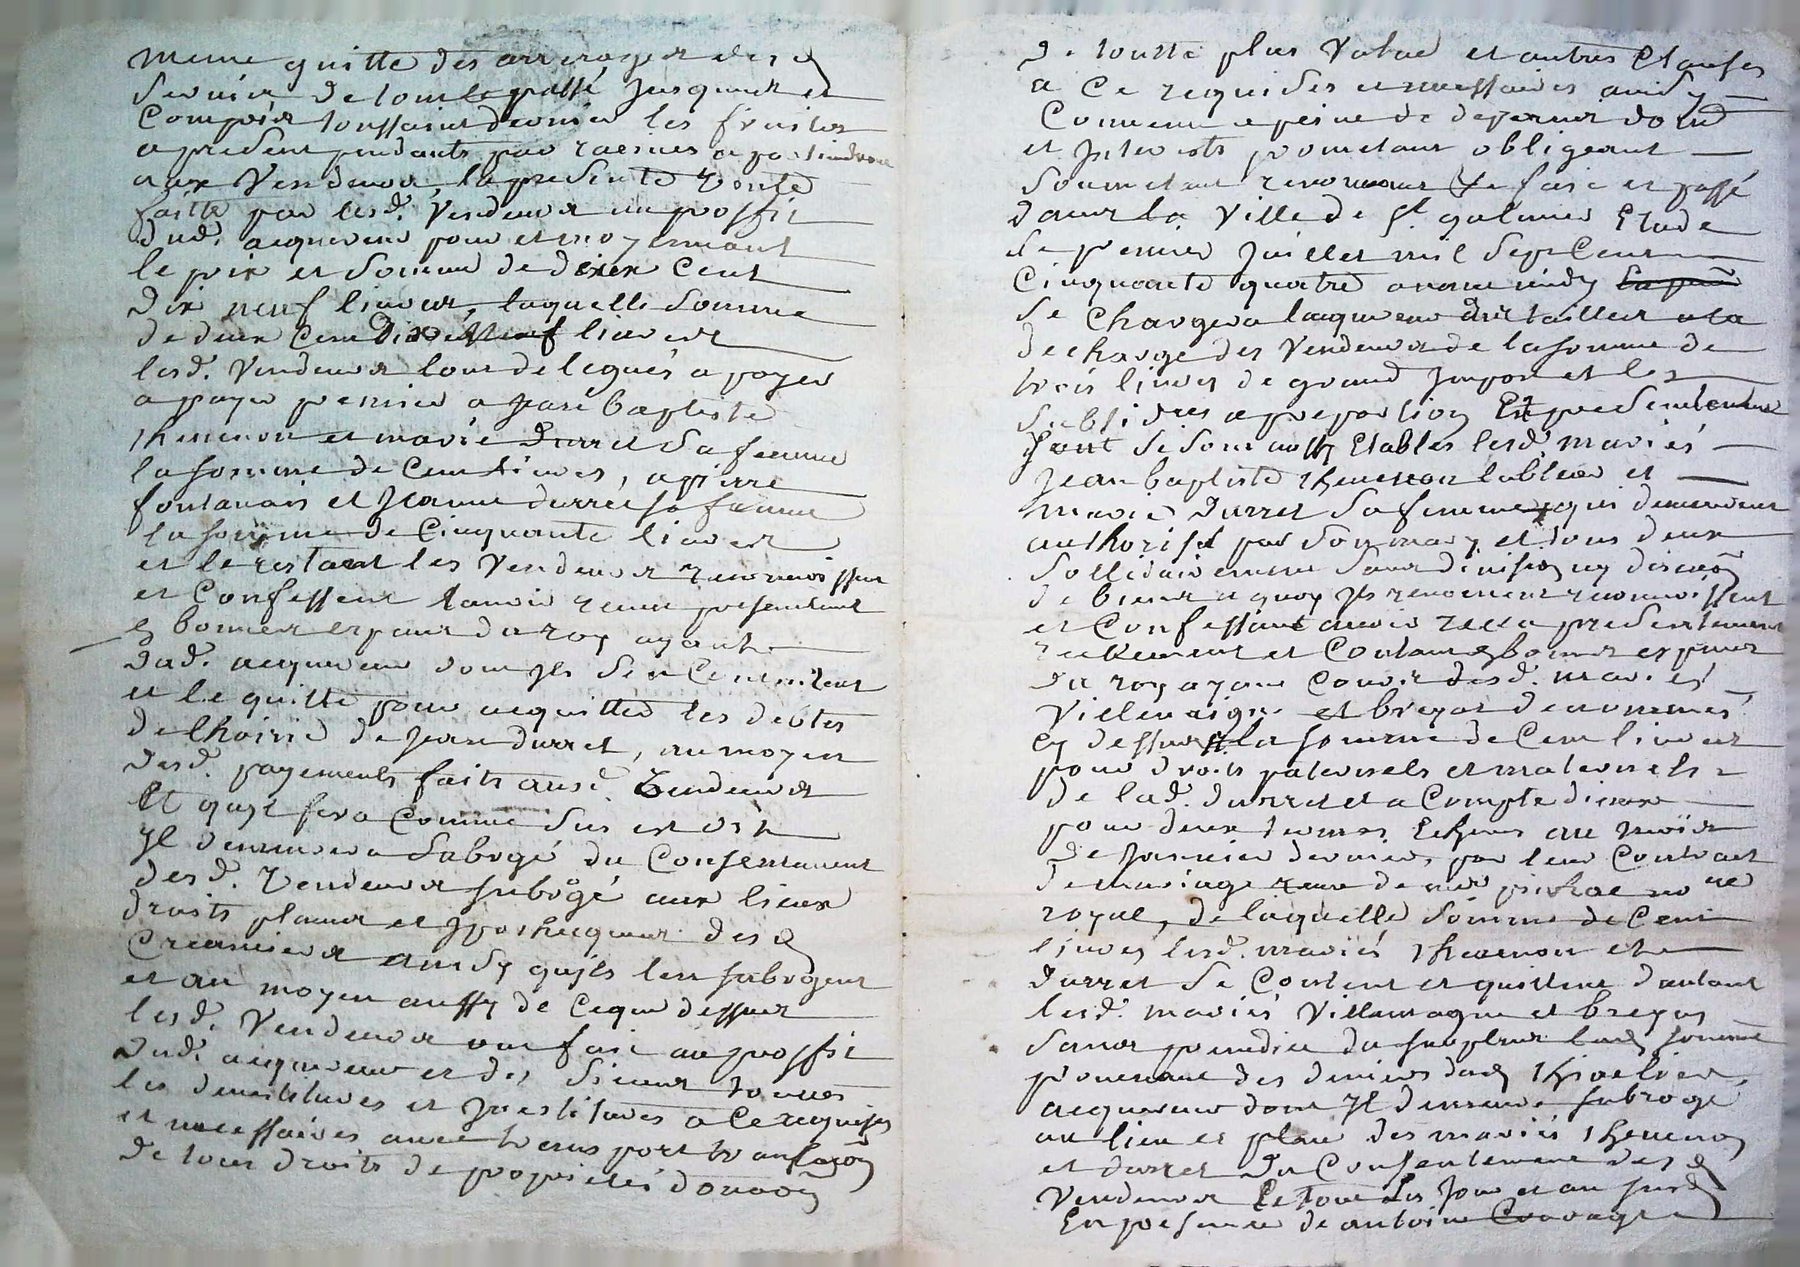 meme quitte des arrerages desd
servis de tout le passé jusques et
Compris toussaint dernier les fruits
a present pendants par racines apartiendront
aux Vendeurs, la presente vente
faitte par lesd. Vendeurs au proffit
dud. acquereur pour et moyennant
le prix et somme de deux Cent
dix neuf livres, laquelle somme
de deux Cent dix neuf livres
lesd. Vendeurs l'ont delegués a payer
a payer premier a Jean baptiste
thevenon et marie durret sa femme
la somme de Cent livres, a pierre
fontanais et Jeanne durret sa femme
la somme de Cinquante livres
et le restant les Vendeurs reconnoissent
et Confessent l'avoir receu presentement
en bonnes especes du roy ayant
dud. acquereur dont Jls se Contentent
et le quitte pour acquitter les debtes
de lhoirie de Jean durret, au moyen
desd. payements faits ausd. Vendeurs
Et quil fera Comme sus est dit
Jl demeurera subrogé du Consentement
desd. Vendeurs subrogé aux lieux
droits places et Jpothecques desd
Creanciers ainsy quils len subrogent
et au moyen aussy de Ceque dessus
lesd. Vendeurs ont fait au proffit
dud. acquereur et des siens toutes
les demistitures et Jnvestitures a Ce requises
et necessaires avec transport translaõn
de tous droits de proprietés donaõn
de toutte plus Value et autres Clauses
a Ce requises et necessaires ainsy
Convenu a peine de depens dom
et Jnterests promettant obligeant
soumetant renonceant &c faic et passé
dans la Ville de St. galmier Etude
le premier Juillet mil sept Cent
Cinquante quatre avant midy
se Chargera lacquereur des tailles a la
decharge des Vendeurs de la somme de
trois livres de grand Jmpost et les
subsides a proportion Et presentement
sont Etablis lesd. mariés
Jean baptiste thevenon et
marie durret sa femme qui demeurent
authorisé par son mary et tous deux
sollidairement sans division ny discuõn
de biens a quoy Jls renoncent reconnoissent
et Confessant avoir receu presentement
reellement et Contant en bonnes especes
du roy ayant Cours desd. mariés
Villemagne et breyas denommés
Cy dessus la somme de Cent livres
pour droits paternels et maternels
de lad. durret et a Compte diceux
pour deux termes Echeus au mois
de Janvier dernier, par leur Contract
de mariage receu de me no re
royal, de laquelle somme de Cent
livres lesd. mariés thevenon et
durret se Content et quittent dautant
lesd. mariés Villemagne et breyas
sans prejudice du surplus lad somme
provenant des deniers dud
acquereur dont Jl demeure subrogé
au lieu et place des mariés thevenon
et durret du Consentement desd
Vendeurs Le tout Les Jour et an susd
En presence de antoine